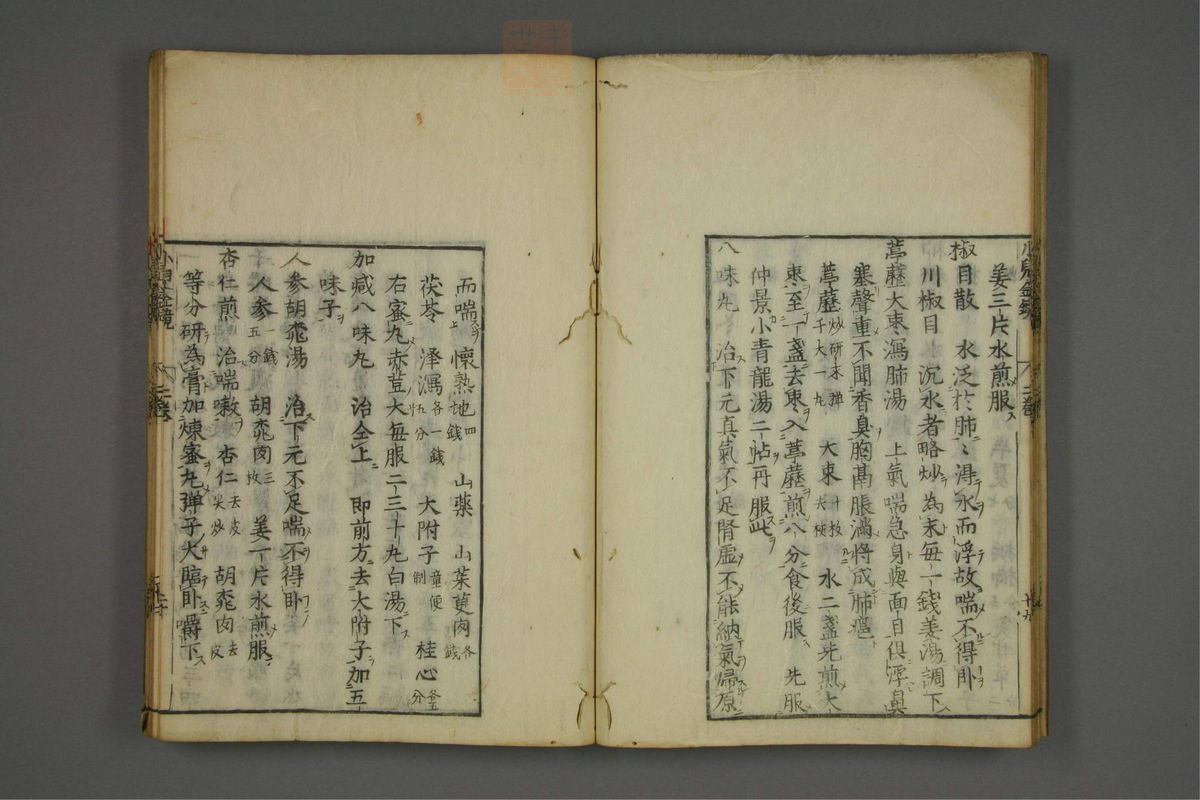 姜三片水煎服
椒目散　水泛於肺〻得水而浮故喘不得卧
川椒目水沉水者略炒為末每一錢姜湯調下
葶藶大棗瀉肺湯　上氣喘急身與面目俱浮鼻
塞聲重不聞香臭胸鬲脹滿将成肺癰
葶藶炒研末彈子大一丸　大棗十枚去核　水二盞先煎大
棗至一盞去棗入葶藶煎八分食後服　先服
仲景小青龍湯二帖再服此
八味丸　治下元真氣不足腎虚不能納氣歸原
而喘上　懷熟地四錢　山藥　山茱萸肉各錢
茯苓　澤瀉各一錢五分　大附子童便制　桂心各五分
右蜜丸赤荳大每服二三十丸白湯下
加减八味丸　治仝上　即前方去大附子加五
味子
人參胡桃湯　治下元不足喘不得卧
人參一錢五分　胡桃肉三枚　姜一片水煎服
杏仁煎　治喘嗽　杏仁去皮尖炒　胡桃肉去皮
等分研為膏加煉蜜丸弹子大臨卧嚼下